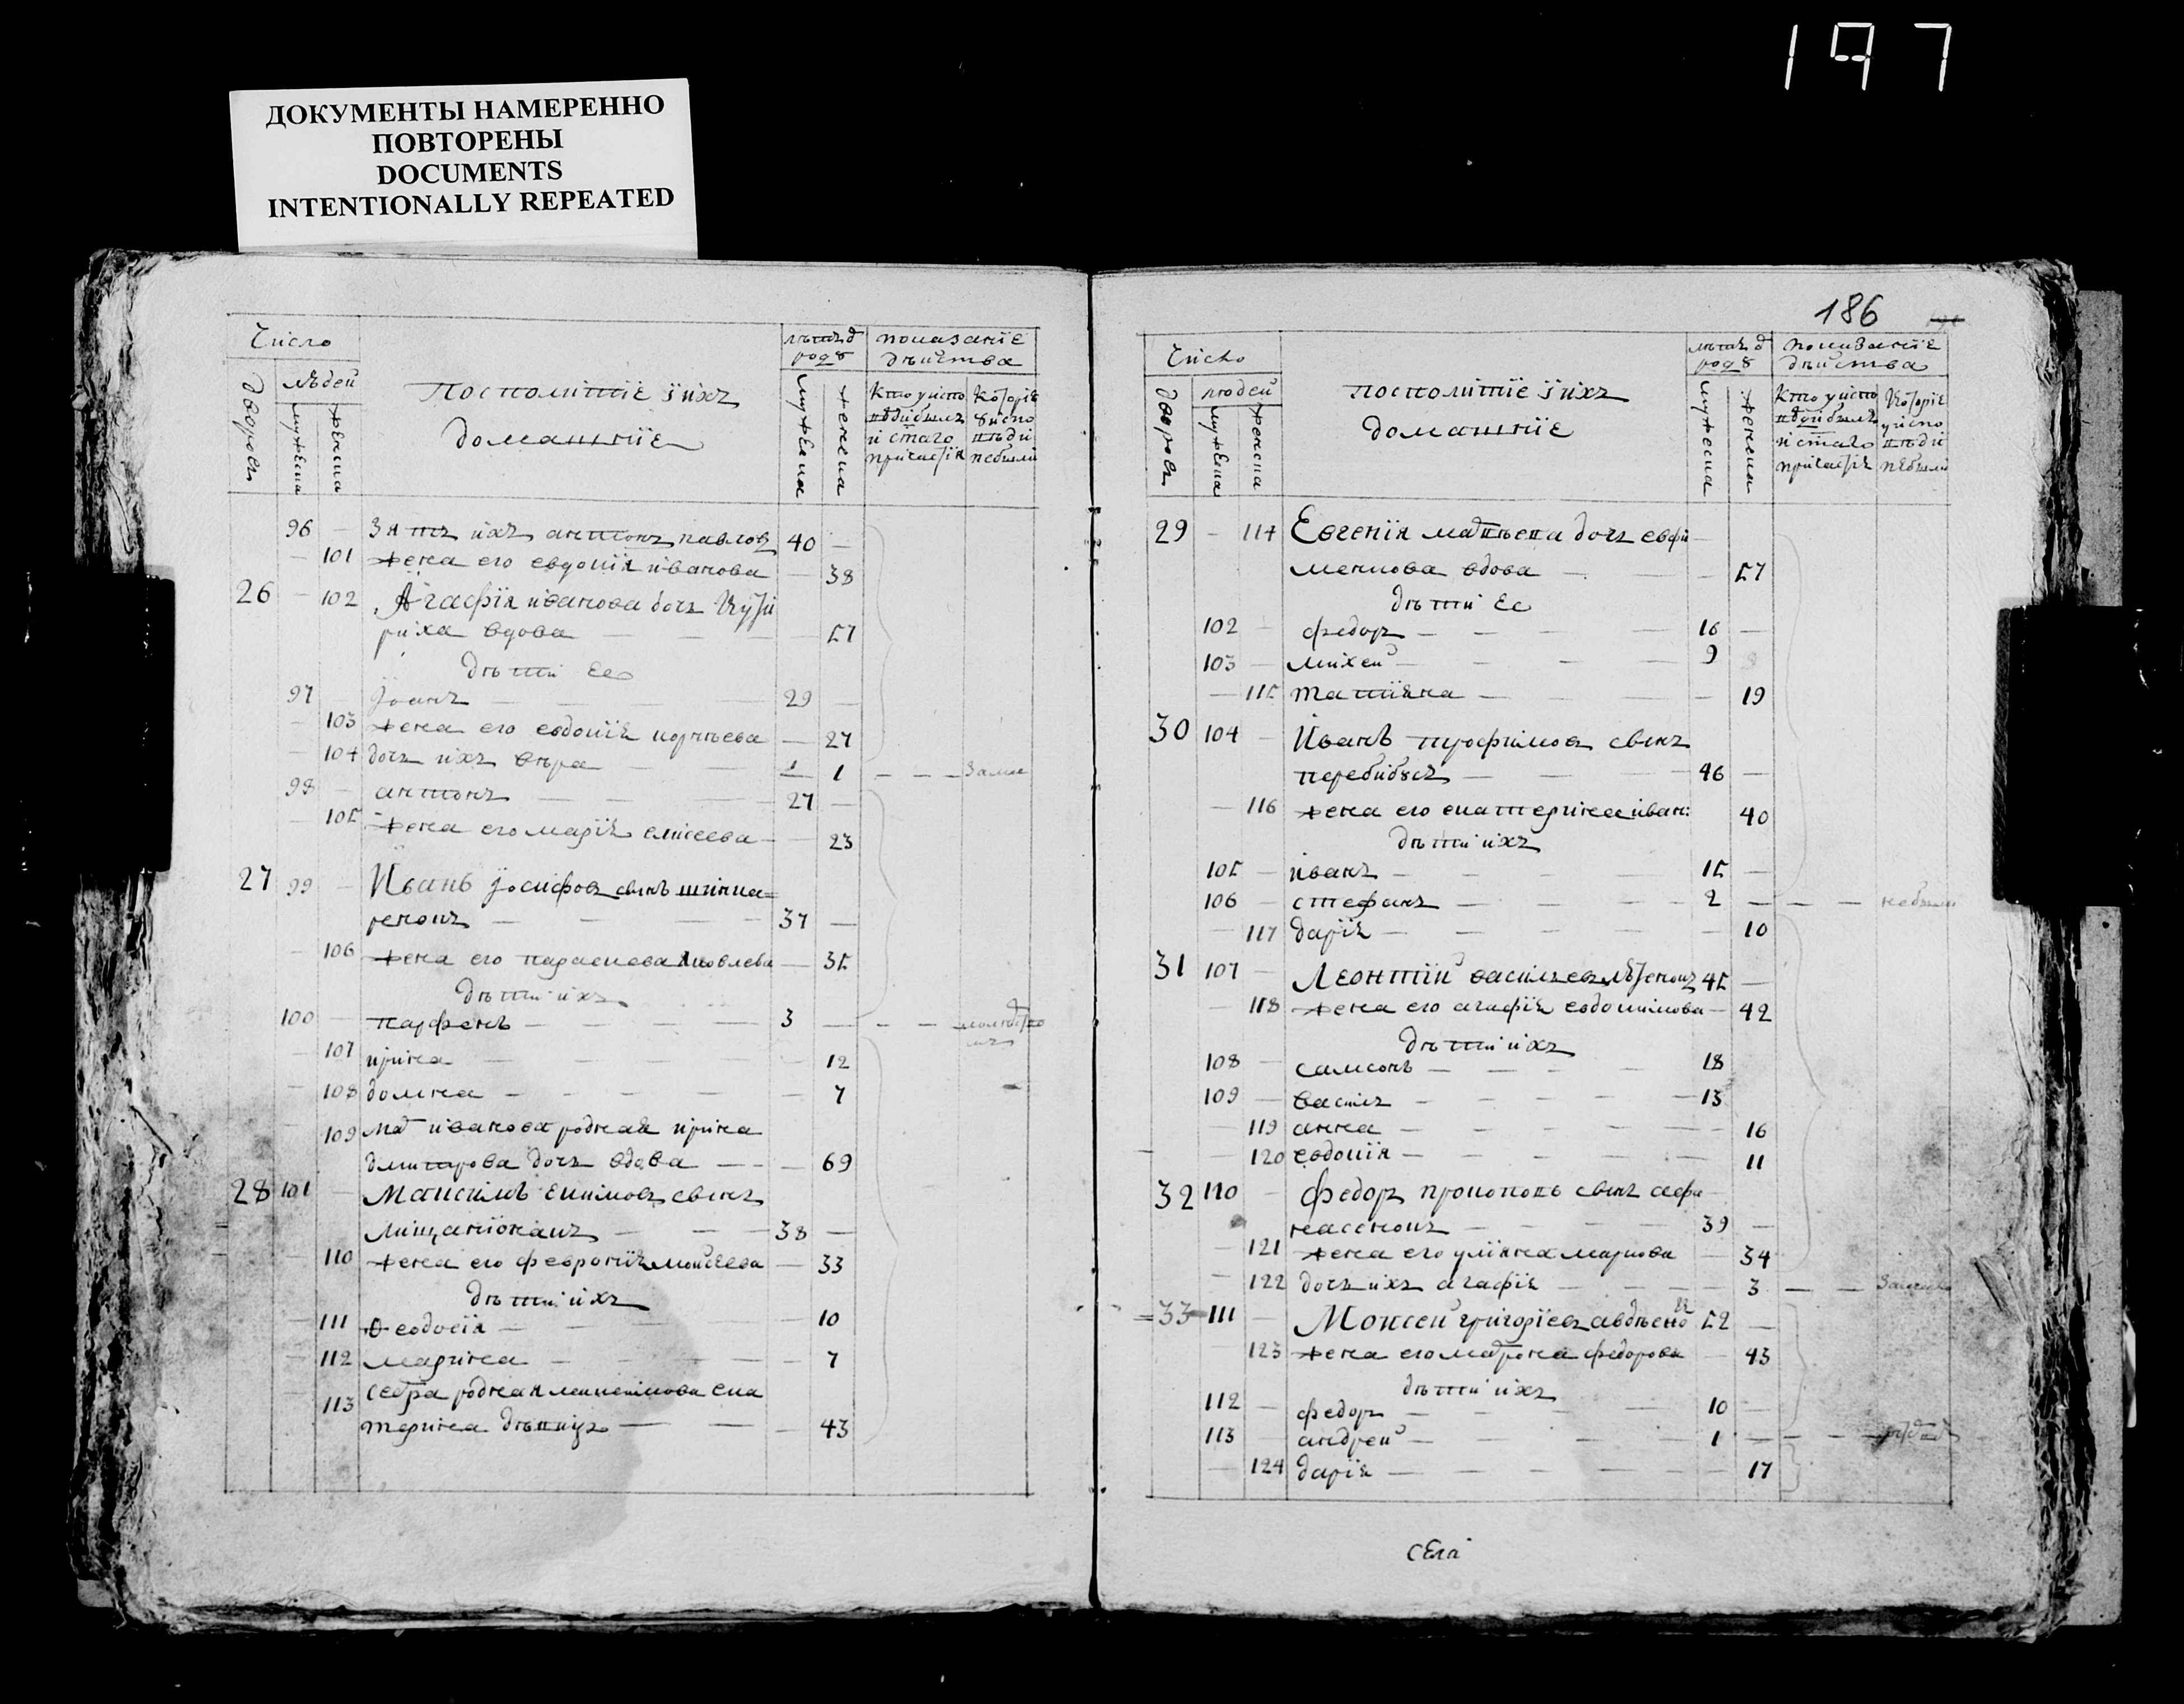 197
ДОКУМЕНТЫ НАМЕРЕННО
ПОВТОРЕНЫ
DOCUMENTS
INTENTIONALLY REPEATED
Число
дворовъ
людей
мужеска
женска
посполитїе ї ихъ
домашнїе
лѣтъ ѿ
роду
мужеска
женска
показанїе
дѣйства
кто у испо
вѣди былъ
и с̃таго
причастїя
которїе
у испо
вѣди
не были
96 — зять ихъ антонъ павловъ 40 —
— 101 жена его евдокїя иванова — 38
26 — 102 Агафїя иванова дочь
риха вдова — — — 57
дѣти ее
97 — їоанъ — — — 29 —
— 103 жена его евдокїя корнѣева — 27
— 104 дочь ихъ вѣра — — 1 — — —
98 — антонъ — — — 27 —
— 105 жена его марїя елисеева — — 23
27 99 — Иванъ їосифовъ сынъ шинка=
ренокъ — — — 37 —
— 106 жена его параскева яковлева — 35
дѣти ихъ
100 — парфенъ — — — — 3 — — —
— 107 ирина — — — — 12
— 108 домна — — — — 7
— 109 мат иванова родная ирина
дмитрова дочь вдова — — — 69
28 101 — Максимъ екимовъ сынъ
— — 38 —
— 110 жена его февронїя мойсеева — 33
дѣти ихъ
— 111 ѳеодосїя — — — 10
— 112 марина — — — — 7
— 113 сестра родная максимова ека
терина дѣвица — — — 43
186
Число
дворовъ
людей
мужеска
женска
посполитїе ї ихъ
домашнїе
лѣтъ ѿ
роду
мужеска
женска
показанїе
дѣйства
кто у испо
вѣди былъ
и с̃таго
причастїя
которїе
у испо
вѣди
не были
29 — 114 Евгенїя матвѣева дочь ефи —
менкова вдова — — — 57
дѣти ее
102 — федоръ — — — 16 —
103 — михей — — — 9
— 115 татїяна — — — 19
30 104 — Иванъ трофимовъ сынъ
перебибусъ — — — 46 —
— 116 жена его екатерина иван: 40
дѣти ихъ
105 — иванъ — — — — 15 —
106 — стефанъ — — — 2 — — — не былъ
— 117 дарїя — — — — — 10
31 107 — Леонтїй василевъ 45 —
— 118 жена его агафїя евдокимова — 42
дѣти ихъ
108 — самсонъ — — — — 18
109 — василь — — — — — 13
— 119 анна — — — — — 16
— 120 евдокїя — — — — — 11
32 110 — Федоръ прокоповъ сынъ афа
насенокъ — — — — 39 —
— 121 жена его улїяна маркова — 34
— 122 дочь ихъ агафїя — — — 3 — —
33 111 — Мойсей григорїевъ авдѣенокъ 52 —
— 123 жена его матрона федорова — 43
дѣти ихъ
112 — федоръ — — — — 10 —
113 — андрей — — — — 1 — — —
— 124 дарїя — — — — — — 17
села